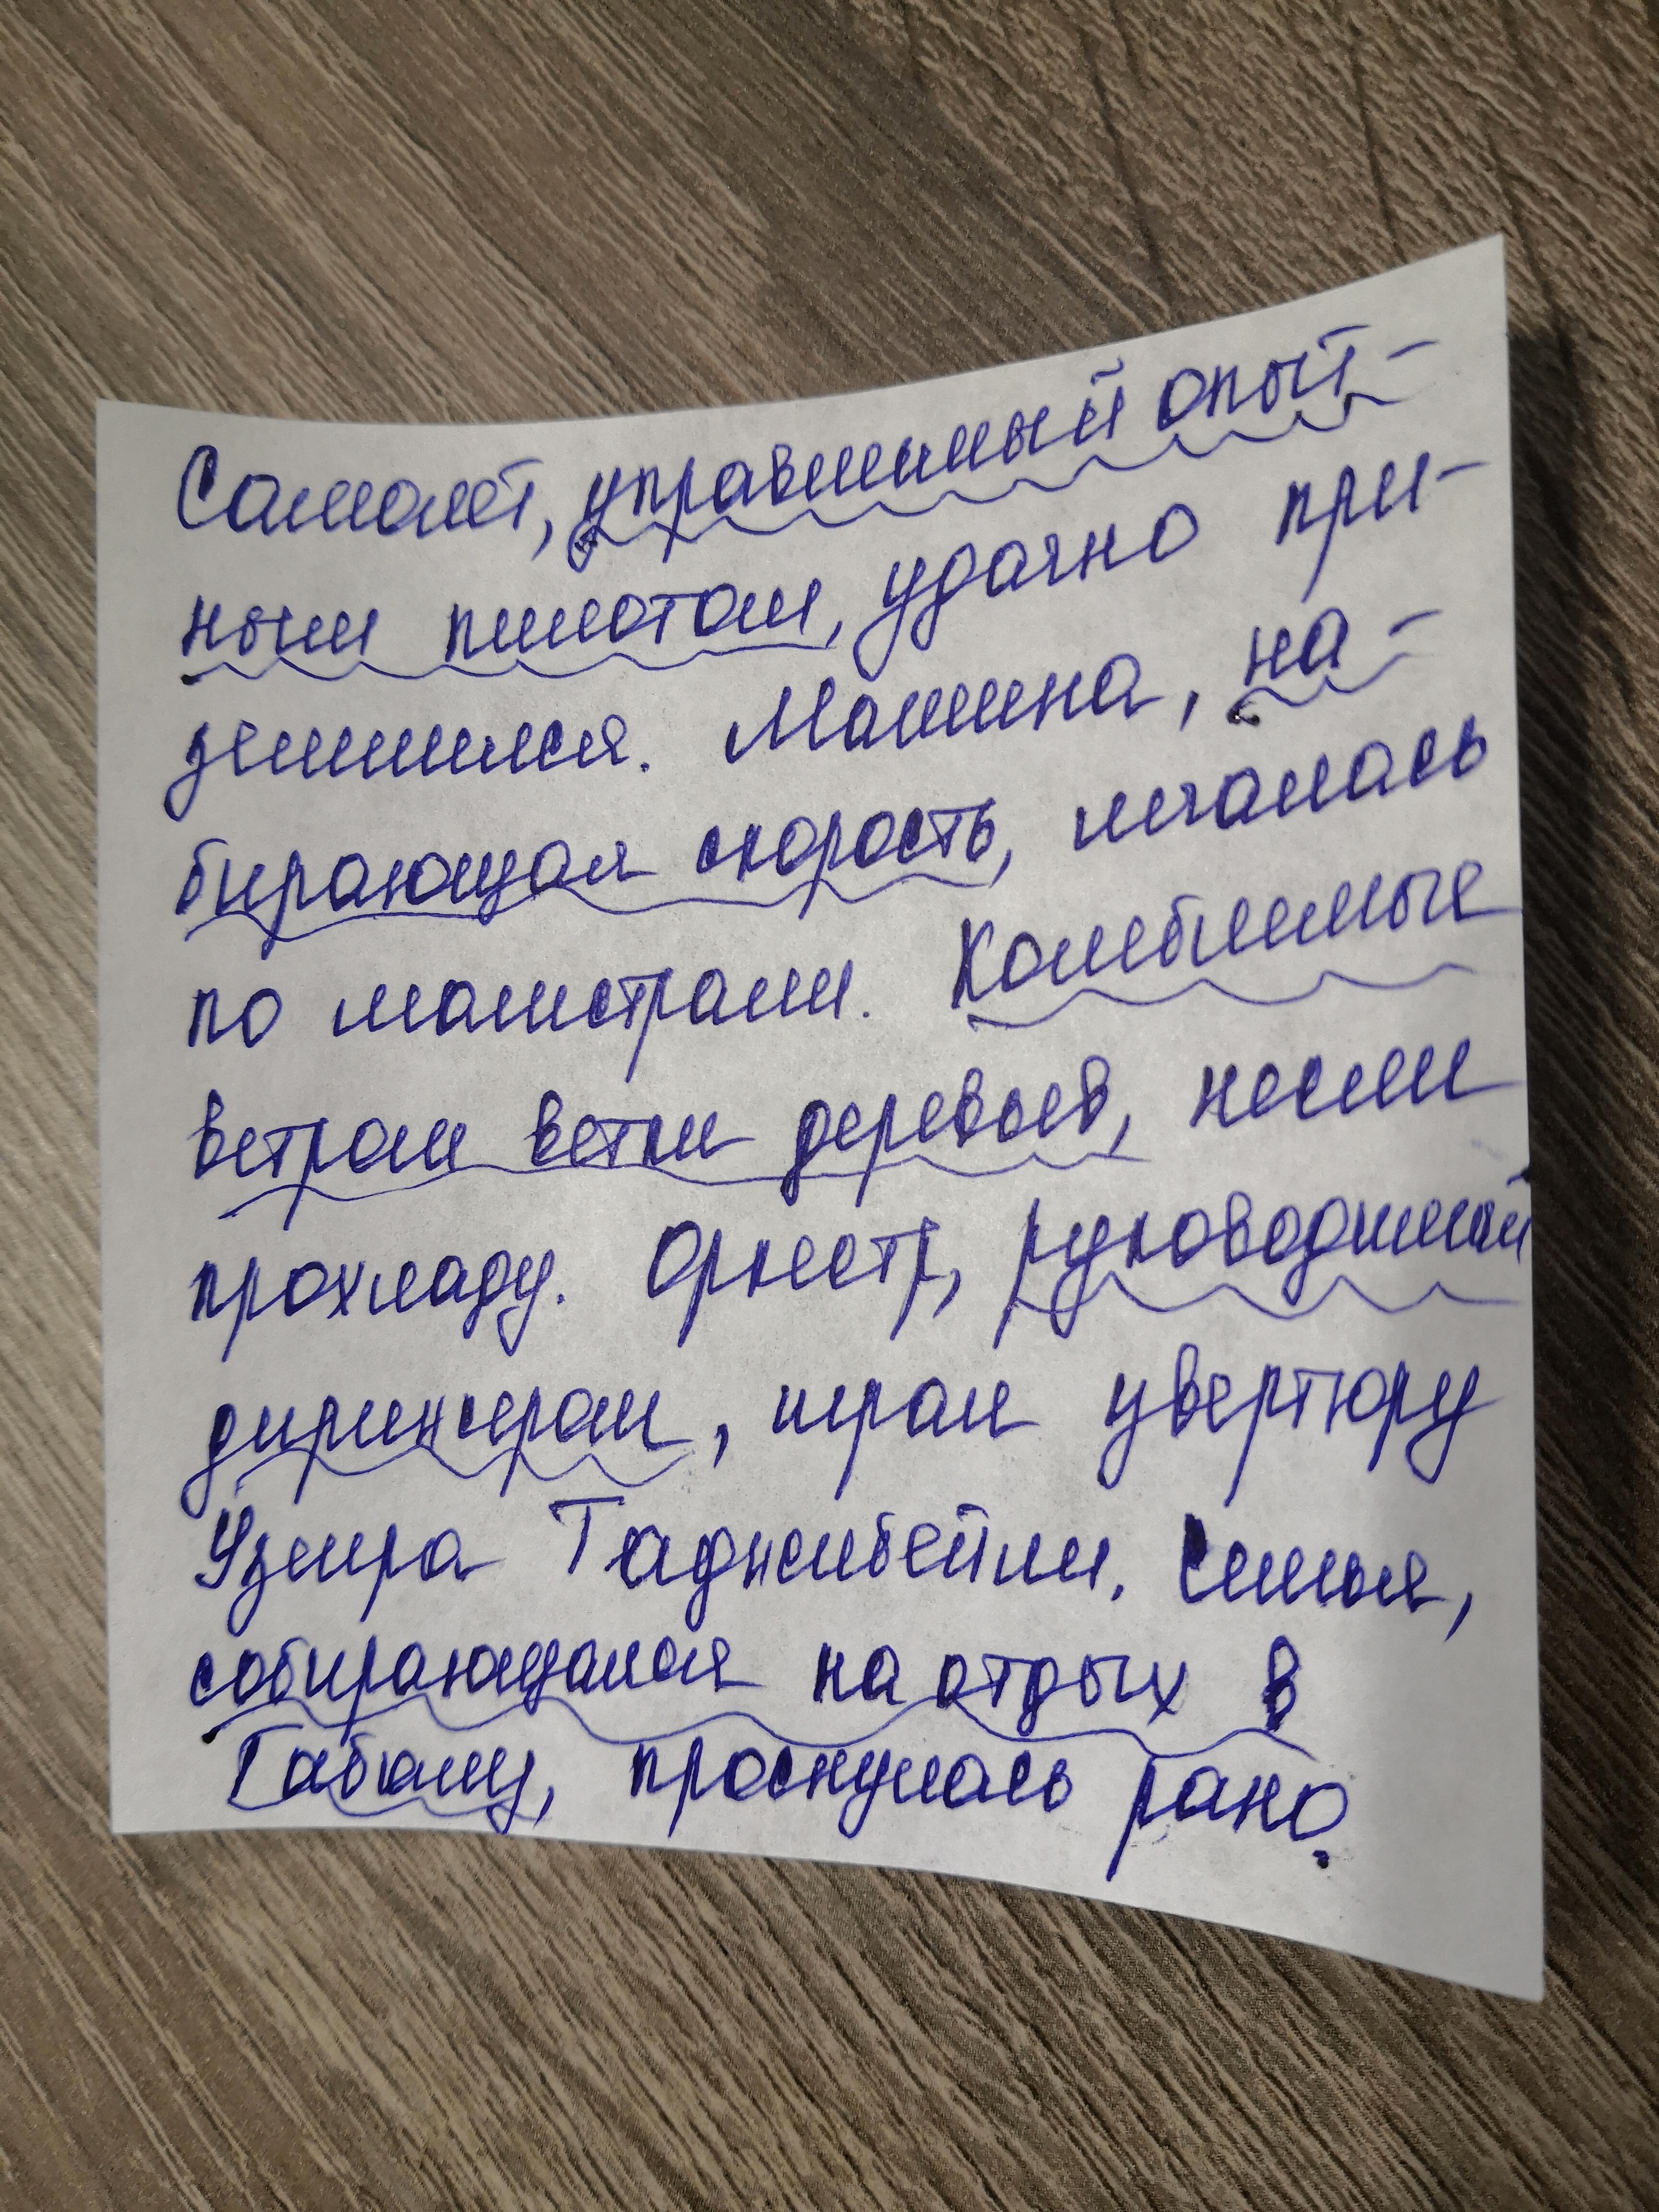 Самолёт, управлимый опыт-
ным пилотом, удачно при-
землился. Машина, на-
бирающая скорость, мчалась
по магистрали. Колеблимые
ветром ветки деревьев, несли
прохладу. Оркестр, руководимый
дирижером, играл увертюру
Узеира Гаджибейли. Семья,
собирающаяся на отдых в
Габалу, проснулась рано.